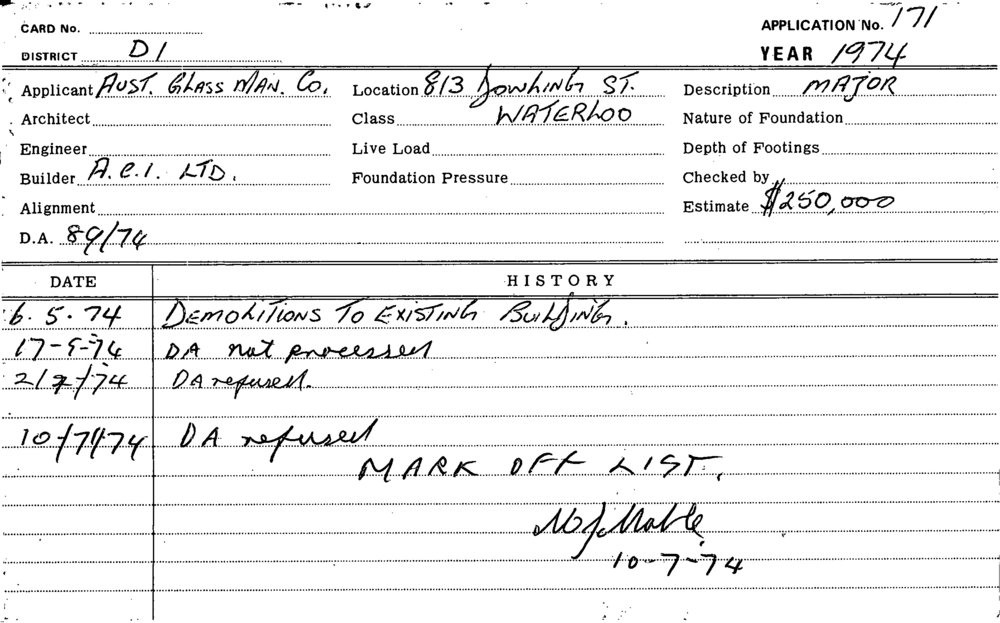 CARD No.
APPLICATION No. 171
DISTRICT D1
YEAR 1974
Applicant AUST. GLASS MAN. CO. Location 813 DOWLING ST. Description MAJOR
Architect Class WATERLOO Nature of Foundation
Engineer Live Load Depth of Footings
Builder A.C.I. LTD. Foundation Pressure Checked by
Alignment Estimate $250,000
D.A. 89/74
DATE HISTORY
6.5.74 DEMOLITIONS TO EXISTING BUILDING.
17-5-74 DA not processed
2/7/74 DA refused.
10/7/74 DA refused
MARK OFF LIST.
10-7-74